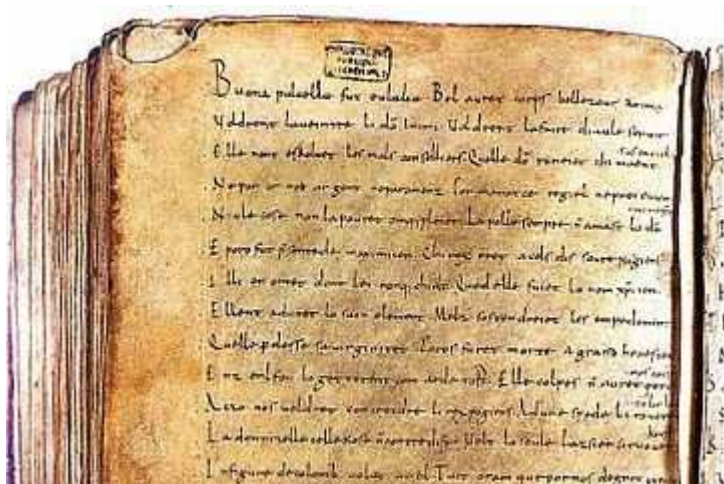 Buona pulcella fut eulalia. Bel auret corps bellezour anima
Voldrent la ueintre li dõ inimi. Voldrent la faire diaule seruir
sus en ciel
Elle nont eskoltet les mals conselliers. Quelle dõ raneiet chi maent
Ne por or ned argent ne paramenz. Por manatce regiel ne preiement
Niule cose non la pouret omq̃ pleier. La polle sempre ñ amast lo dõ
E poro fut p̃sentede maximiien. Chi rex eret a cels dis soure pagiens
Il li enortet dont lei nonq̃ chielt. Qued elle fuiet lo nom xp̃iien
Ellent adunet lo suon element. Melz sostendreiet les empedementz
Quelle perdesse sa uirginitet. Poros furet morte a grand honestet
Enz enl fou lo getterent com arde tost. Elle colpes ñ auret poro
Aczo nos uoldret concreidre li rex pagiens. Ad une spede li roueret
La domnizelle celle kose ñ contredist. Volt lo seule lazsier si ruouet
In figure de colomb uolat a ciel. Tuit oram que por nos degnet